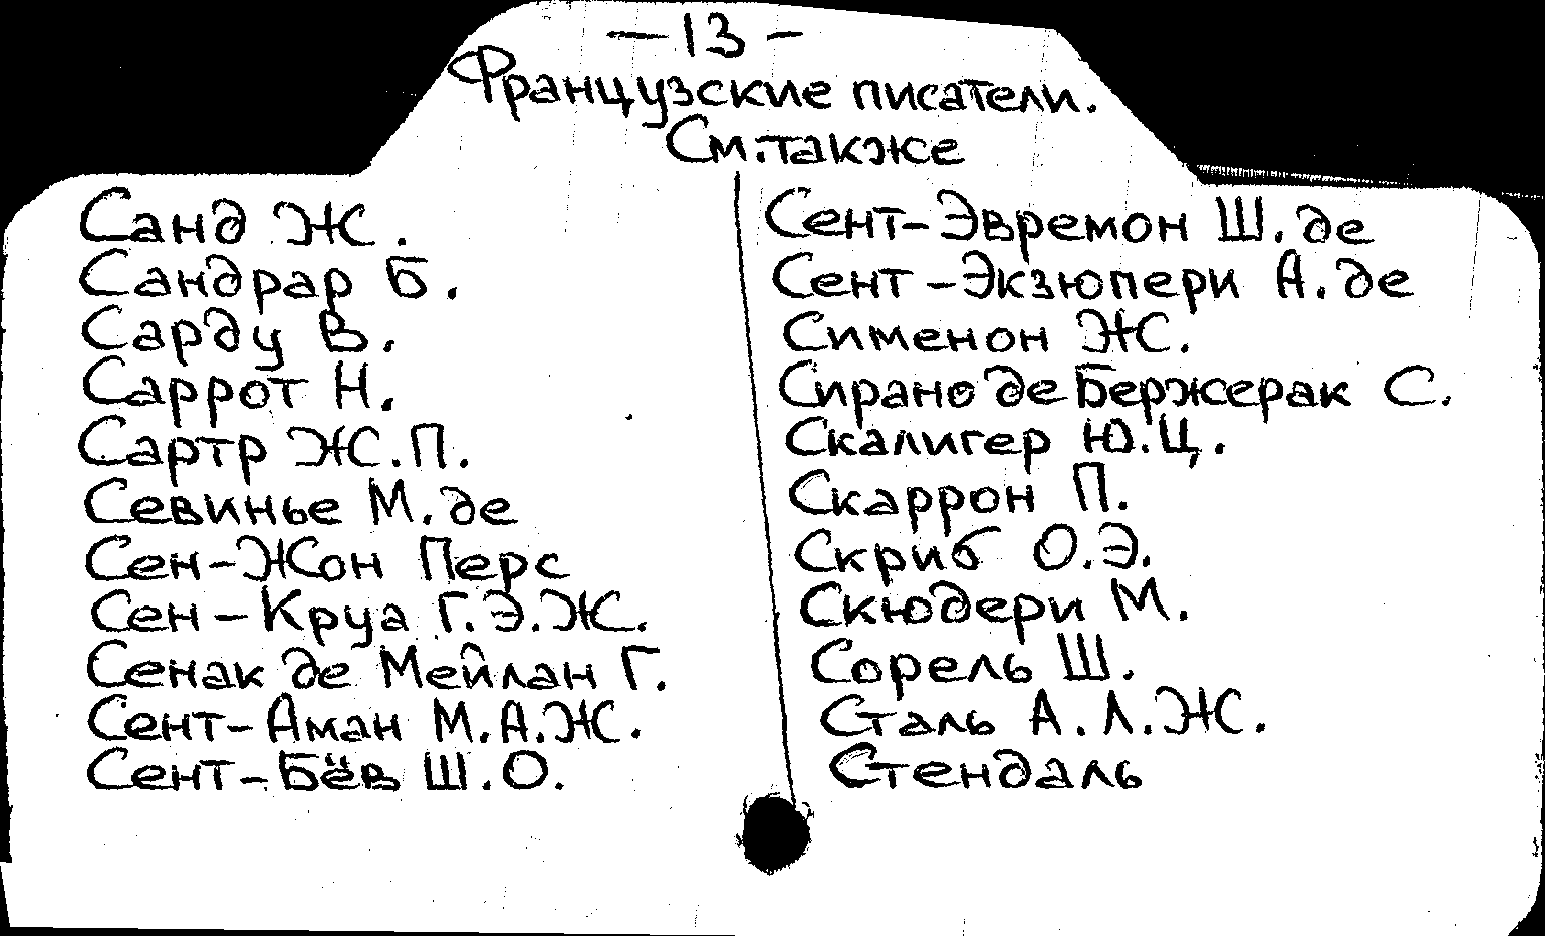 — 13 –
Французские писатели.
См. также
Санд Ж.
Сандрар Б.
Сарду В.
Саррот Н.
Сартр Ж.П.
Севинье М. де
Сен-Жон Перс
Сен-Круа Г.Э.Ж.
Сенак де Мейлан Г.
Сент-Аман М.А.Ж.
Сент-Бёв Ш.О.
Сент-Эвремон Ш. де
Сент-Экзюпери А. де
Сименон Ж.
Сирано де Бержерак С.
Скалигер Ю.Ц.
Скаррон П.
Скриб О.Э.
Скюдери М.
Сорель Ш.
Сталь А.Л.Ж.
Стендаль